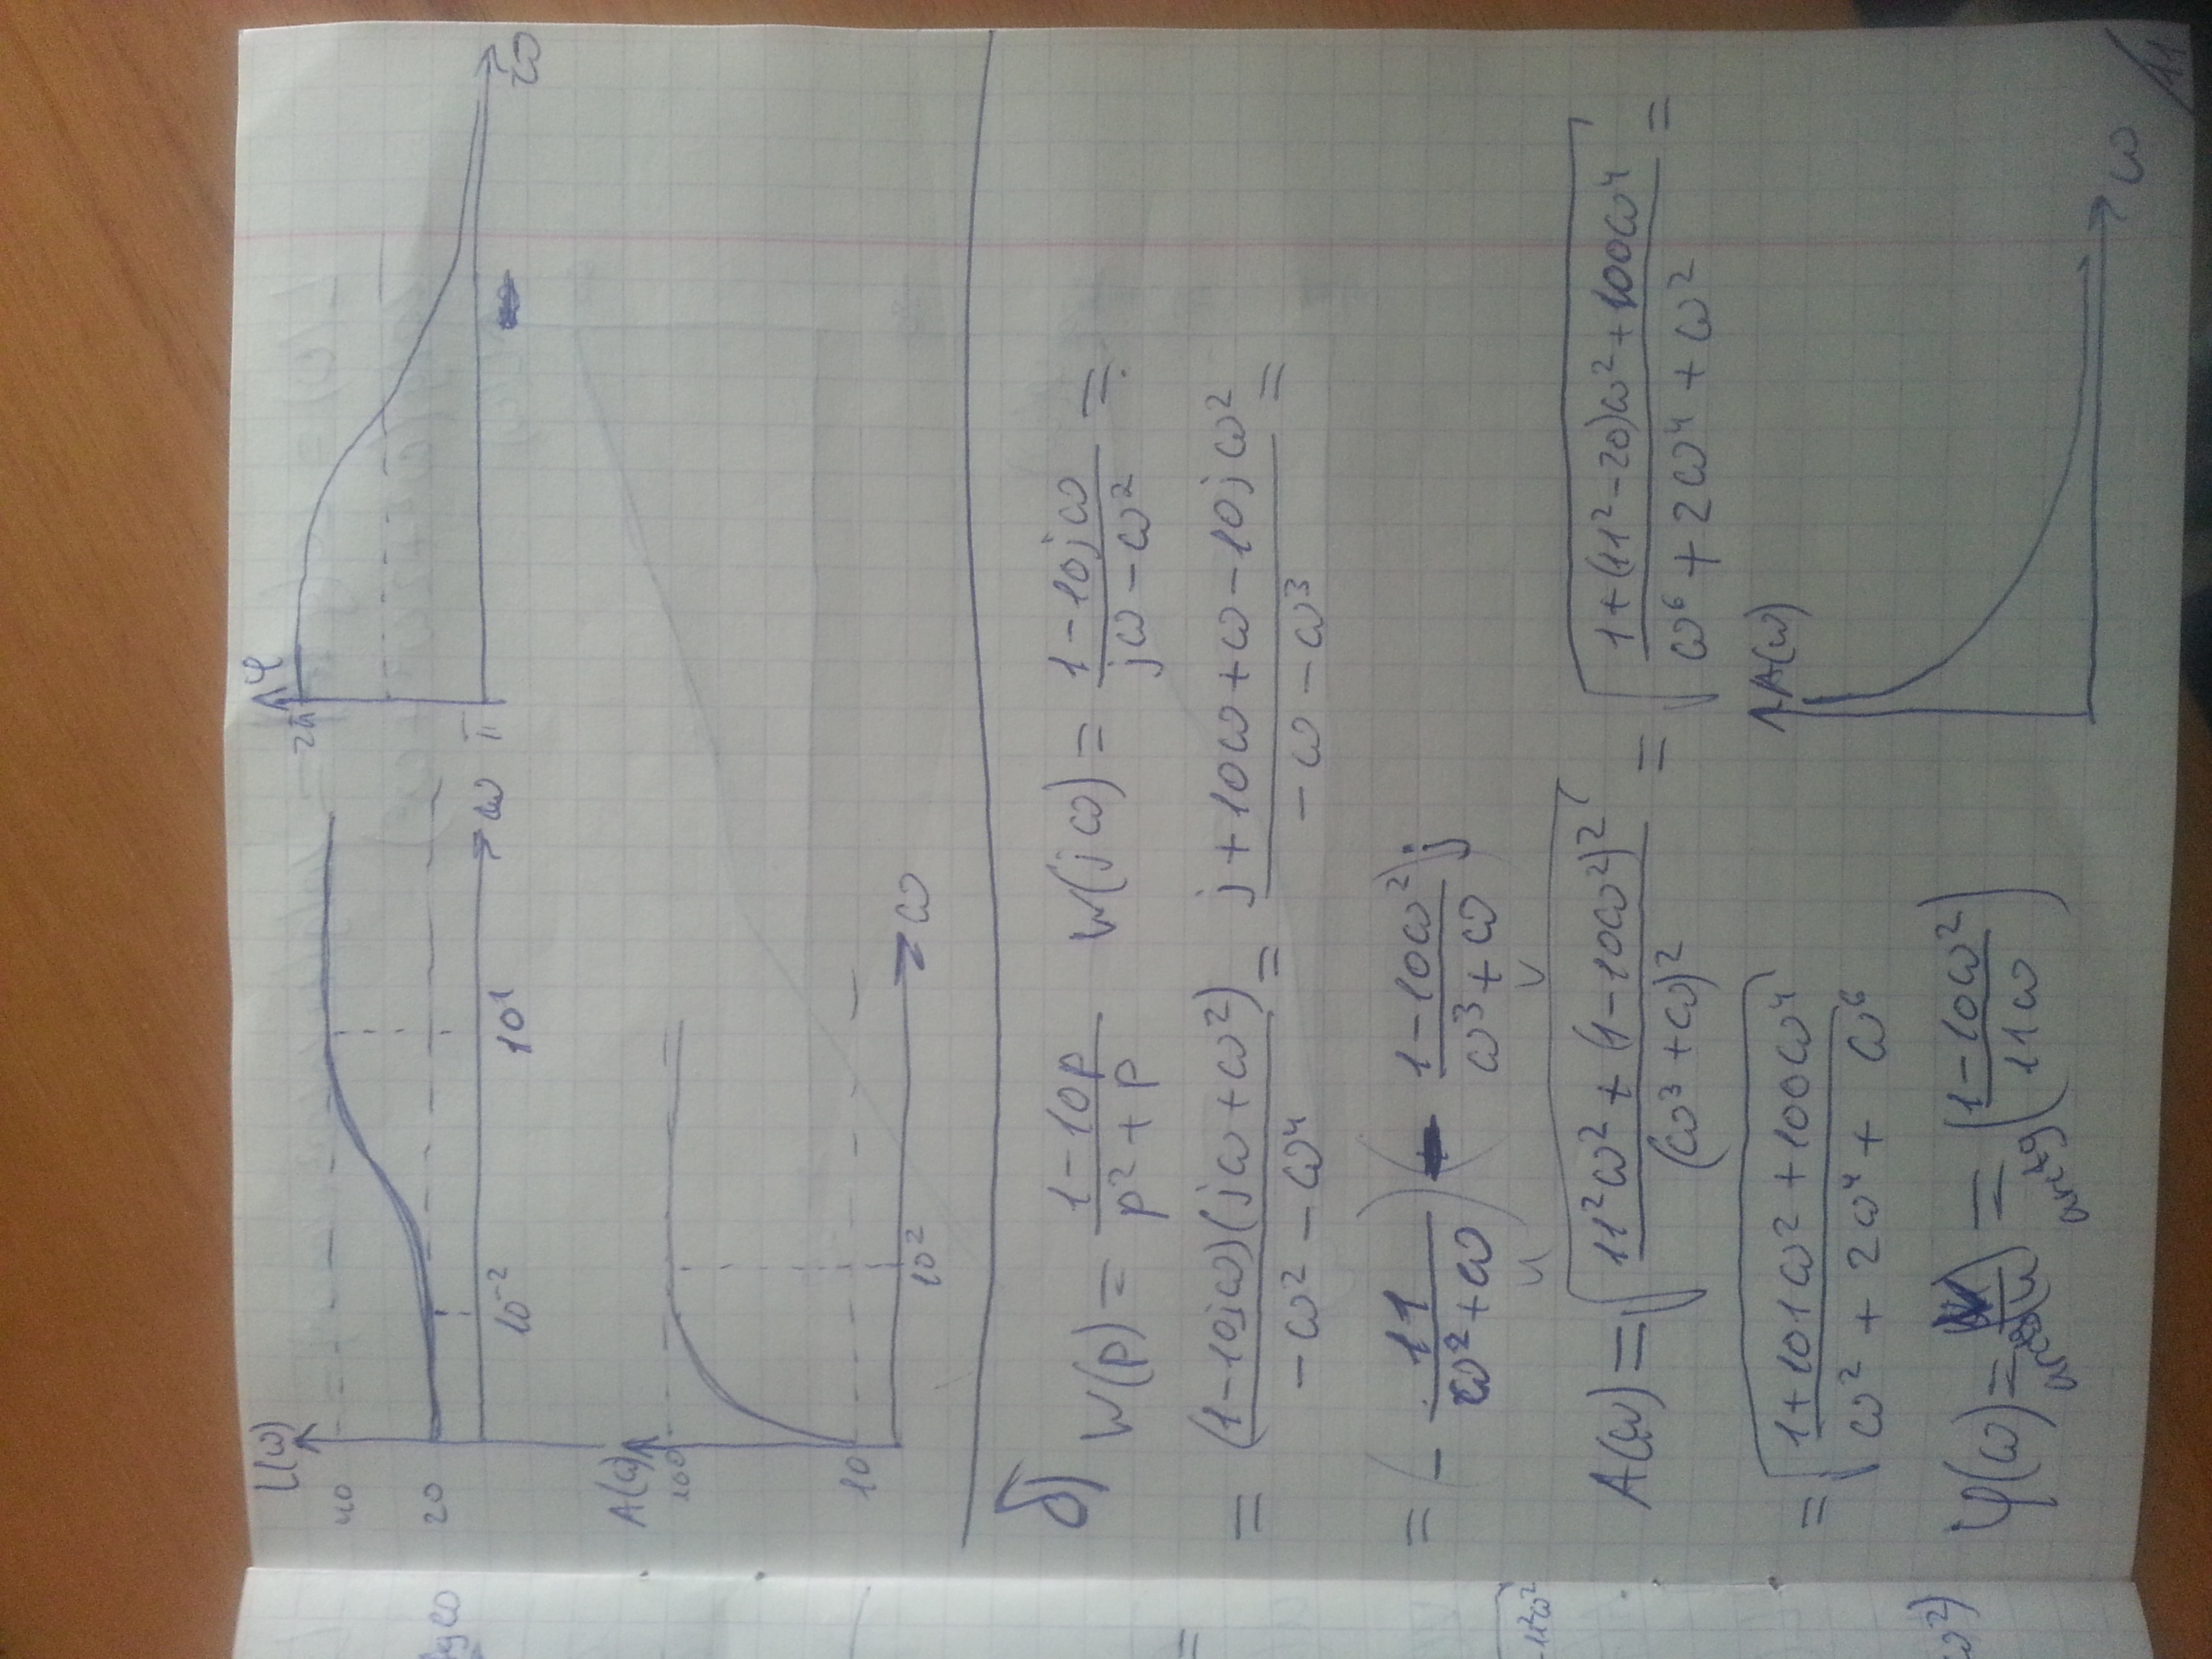 L(ω) φ
40 2π
20
10⁻² 10¹ ω π ω
A(ω)
100
10
10² ω
б) W(p) = (1-10p)/(p²+p) W(jω) = (1-10jω)/(jω-ω²) =
= ((1-10jω)(jω+ω²))/(-ω²-ω⁴) = (j+10ω+ω-10jω²)/(-ω-ω³) =
= (- 11/(ω²+ω)) (- (1-10ω²)/(ω³+ω))j
u v
A(ω) = √((11²ω²+(1-10ω²)²)/(ω³+ω)²) = √((1+(11²-20)ω²+100ω⁴)/(ω⁶+2ω⁴+ω²)) =
= √((1+101ω²+100ω⁴)/(ω²+2ω⁴+ω⁶)) A(ω)
φ(ω) = arctg(v/u) = arctg((1-10ω²)/(11ω))
ω
11